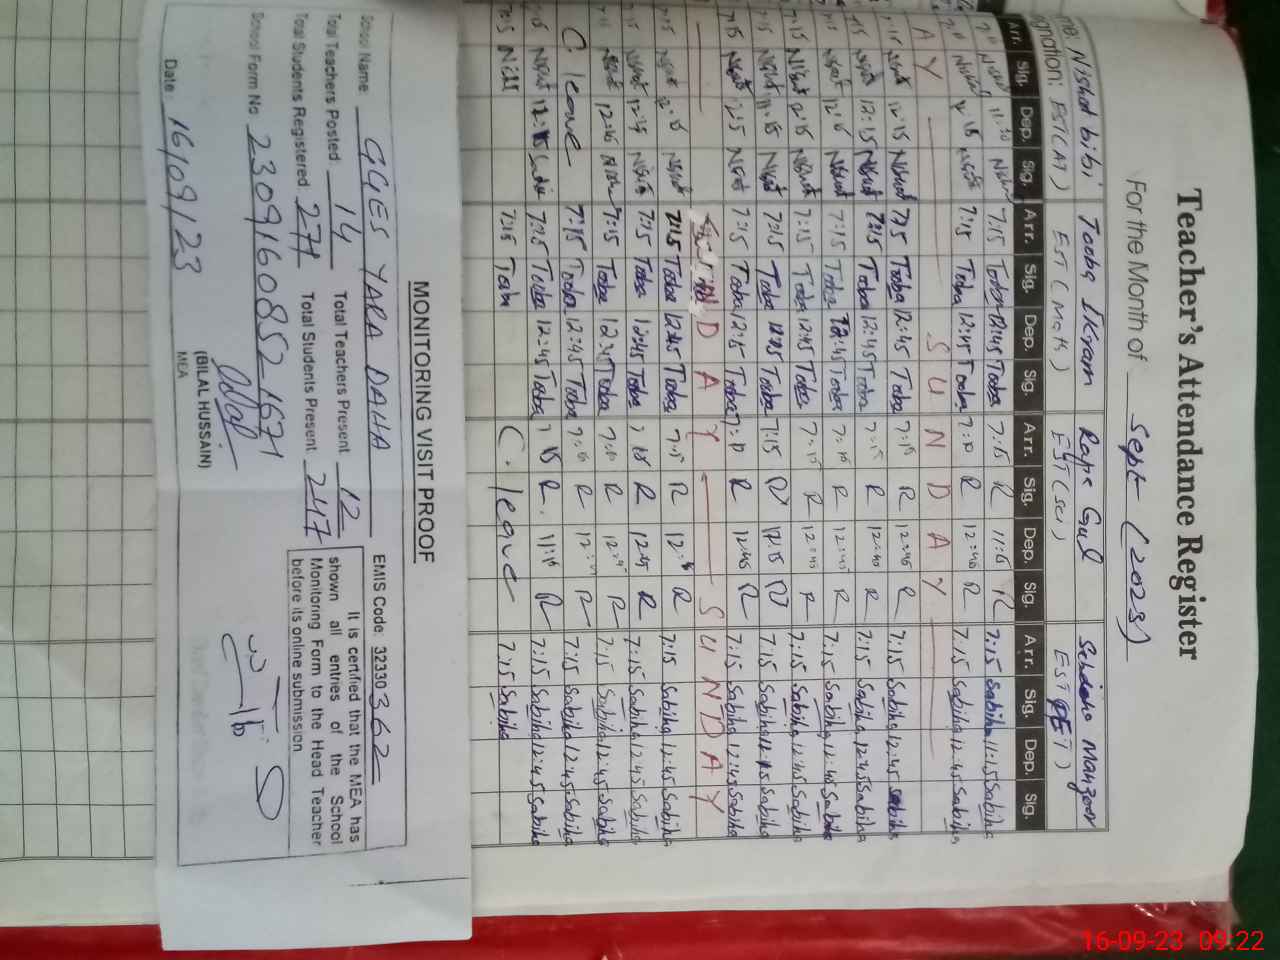 Teacher's Attendance Register
For the Month of Sept- (2023)
Nishat bibi Tooba Ikram Gul Manzoor
EST(AT) EST (Math) EST (Sci)
Arr. Sig. Dep. Sig. Arr. Sig. Dep. Sig. Arr. Sig. Dep. Sig. Arr. Sig. Dep. Sig.
7:15 Tooba 12:45 Tooba 7:15 R 11:15 R 7:15 Sabiha 11:15 Sabiha
7:15 Tooba 12:45 Tooba R 12:45 R 7:15 Sabiha 12:45 Sabiha
A Y S U N D A Y
12:15 Nishat 7:15 Tooba 12:45 Tooba 7:15 R 12:45 R 7:15 Sabiha 12:45 Sabiha
12:15 Nishat 7:15 Tooba 12:45 Tooba 7:15 R 12:45 R 7:15 Sabiha 12:45 Sabiha
Nishat 7:15 Tooba 12:45 Tooba 7:15 R 12:45 R 7:15 Sabiha 12:45 Sabiha
7:15 Nishat 12:15 Nishat 7:15 Tooba 12:45 Tooba 7:15 R 12:45 R 7:15 Sabiha 12:45 Sabiha
7:15 Nishat Nishat 7:15 Tooba 12:45 Tooba 7:15 R 12:15 R 7:15 Sabiha 12:45 Sabiha
7:15 Nishat 12:15 Nishat 7:15 Tooba 12:45 Tooba R 12:45 R 7:15 Sabiha 12:45 Sabiha
D A Y S U N D A Y
7:15 12:15 Nishat 7:15 Tooba 12:45 Tooba 7:15 R R 7:15 Sabiha 12:45 Sabiha
7:15 Nishat Nishat 7:15 Tooba 12:45 Tooba 7:15 R 12:45 R 7:15 Sabiha 12:45 Sabiha
7:15 Nishat 12:15 7:15 Tooba 12:45 Tooba R R 7:15 Sabiha 12:45 Sabiha
C. leave 7:15 Tooba 12:45 Tooba R R 7:15 Sabiha 12:45 Sabiha
7:15 Nishat 7:15 Tooba 12:45 Tooba 7:15 R. 11:15 R 7:15 Sabiha 12:45 Sabiha
7:15 7:15 Tooba C. leave 7:15 Sabiha
MONITORING VISIT PROOF
School Name GGES YARA DAHA EMIS Code: 32330362
Total Teachers Posted 14 Total Teachers Present 12
Total Students Registered 271 Total Students Present 247
School Form No 2309160852-1671
Date: 16/09/23
(BILAL HUSSAIN)
MEA
It is certified that the MEA has
shown all entries of the School
Monitoring Form to the Head Teacher
before its online submission
16-09-23 09:22